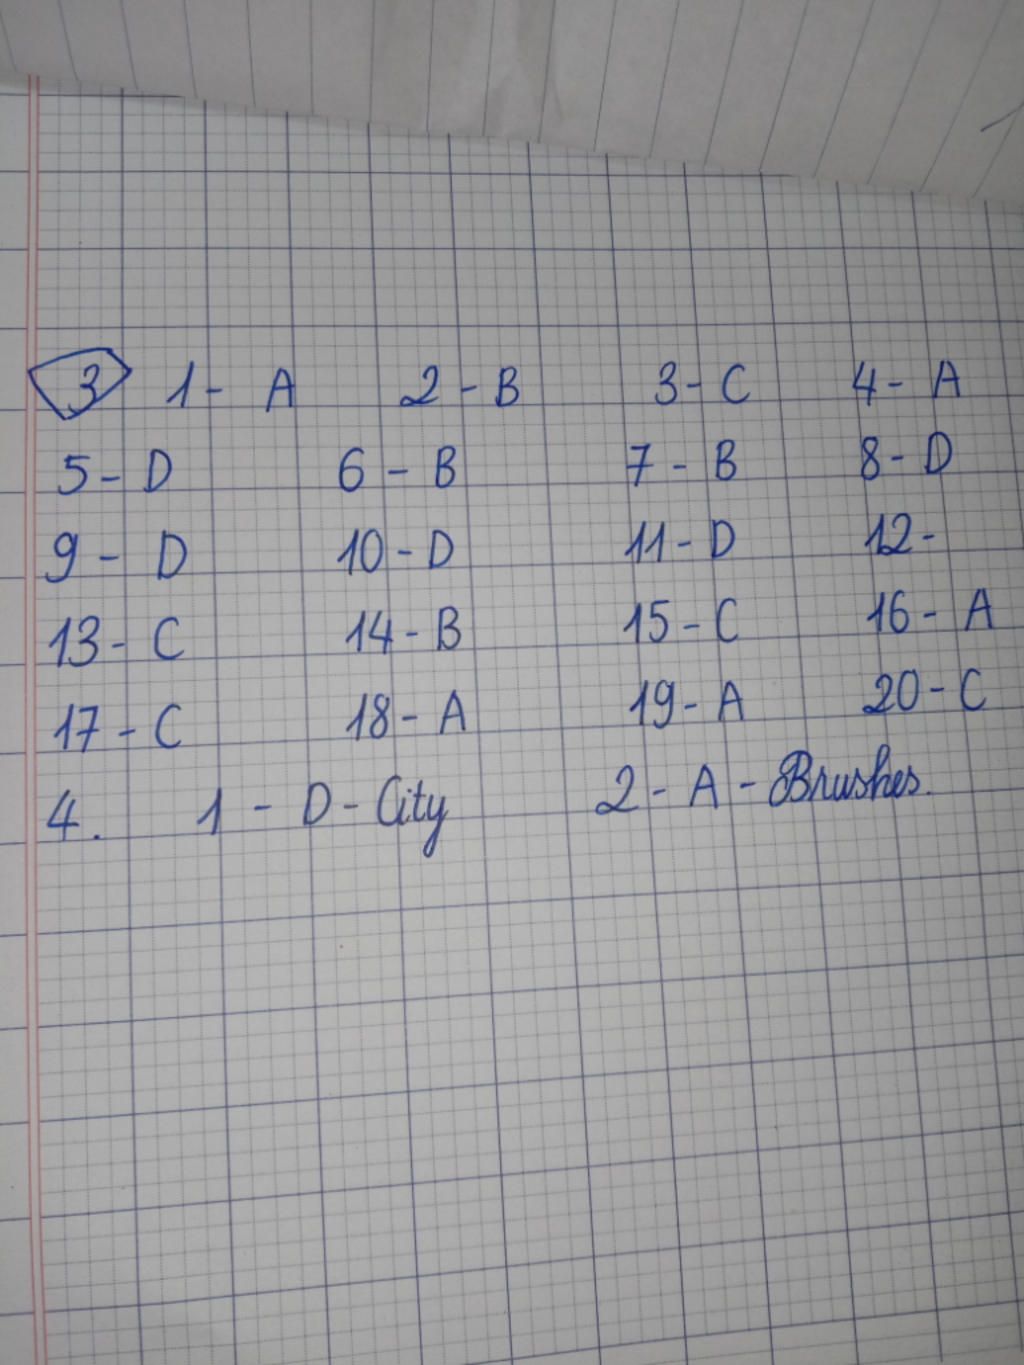 3 1- A 2 - B 3- C 4- A
5- D 6 - B 7 - B 8- D
9 - D 10 - D 11 - D 12-
13- C 14- B 15 - C 16- A
17 - C 18 - A 19 - A 20 - C
4. 1 - D - City 2 - A - Brushes.